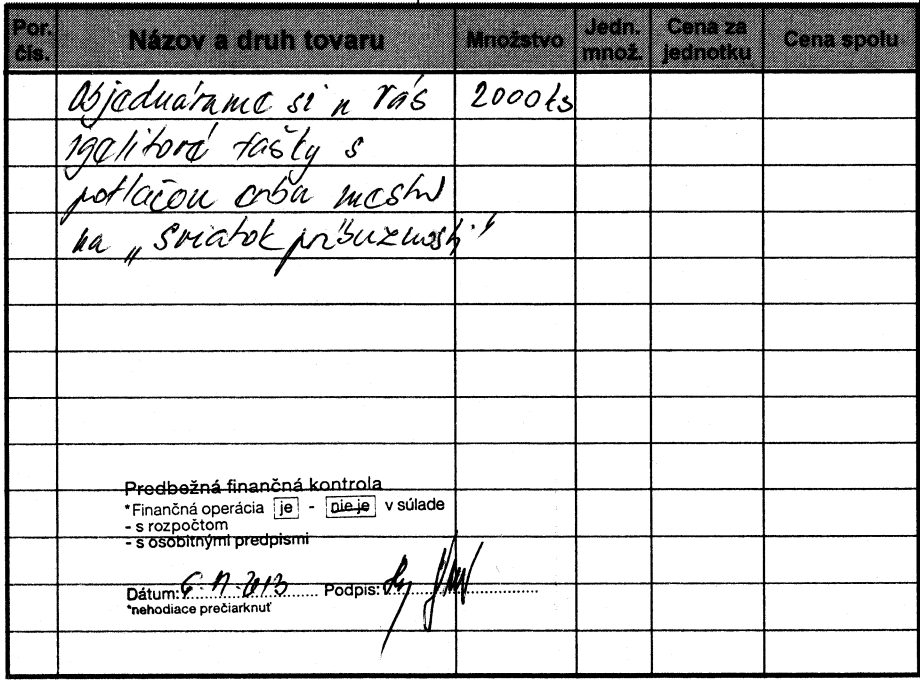 Por. čís. Názov a druh tovaru Množstvo Jedn. množ. Cena za jednotku Cena spolu
Objednávame si u Vás 2000 ks
igelitové tašky s
potlačou erbu mesta
na „Sviatok príbuznosti"
Predbežná finančná kontrola
*Finančná operácia je - nie je v súlade
- s rozpočtom
- s osobitnými predpismi
Dátum: 6.11.2013 Podpis:
*nehodiace prečiarknuť